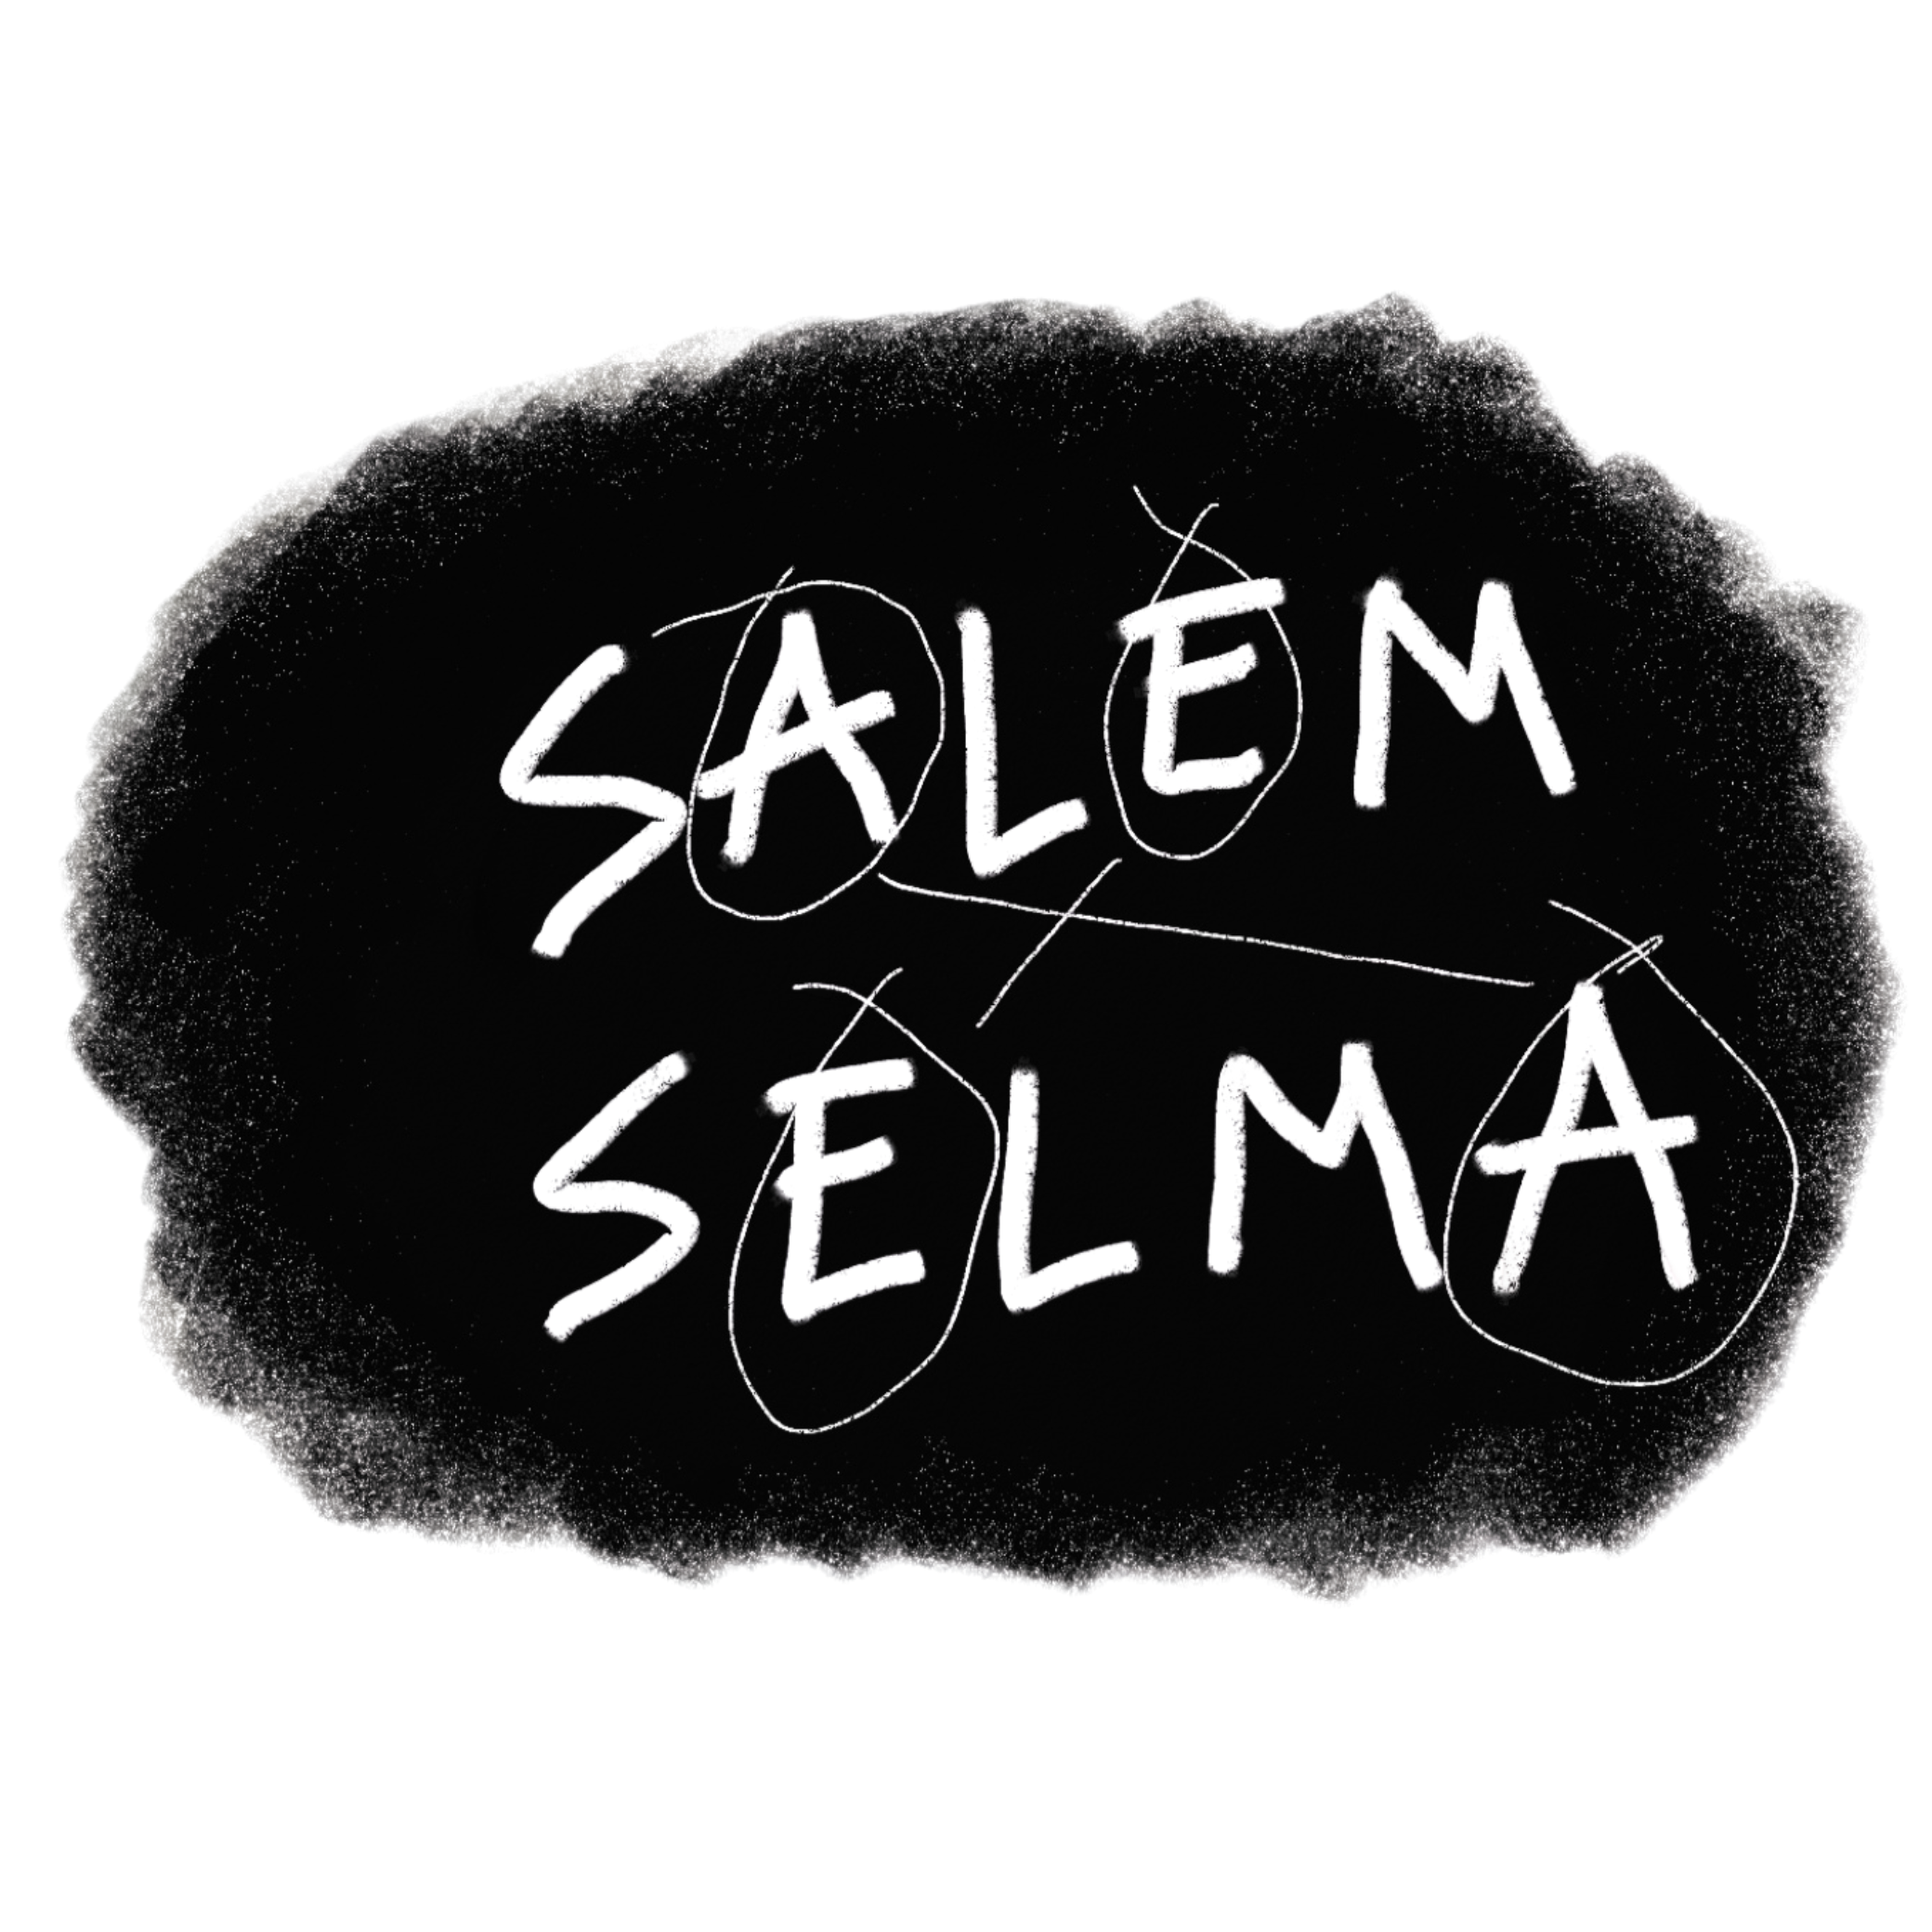 SALEM
SELMA